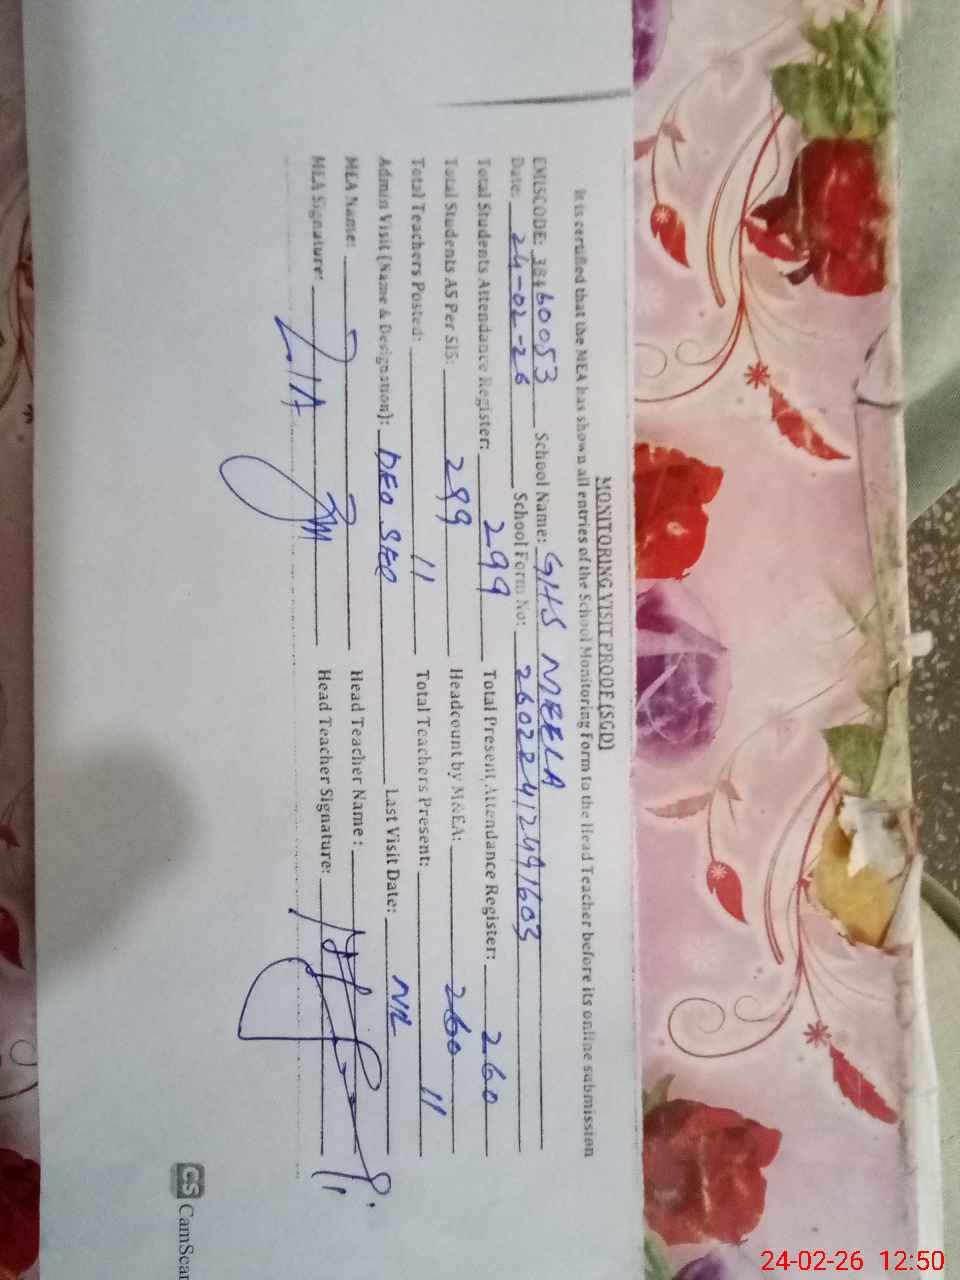 MONITORING VISIT PROOF (SGD)
It is certified that the MEA has shown all entries of the School Monitoring Form to the Head Teacher before its online submission
EMISCODE: 38460053 School Name: GHS MEELA
Date: 24-02-26 School Form No: 26022412491603
Total Students Attendance Register: 299 Total Present Attendance Register: 260
Total Students AS Per SIS: 299 Headcount by M&EA: 260
Total Teachers Posted: 11 Total Teachers Present: 11
Admin Visit (Name & Designation): DEO SED Last Visit Date: NIL
MEA Name: Head Teacher Name:
MEA Signature: Head Teacher Signature:
CS CamScan
24-02-26 12:50